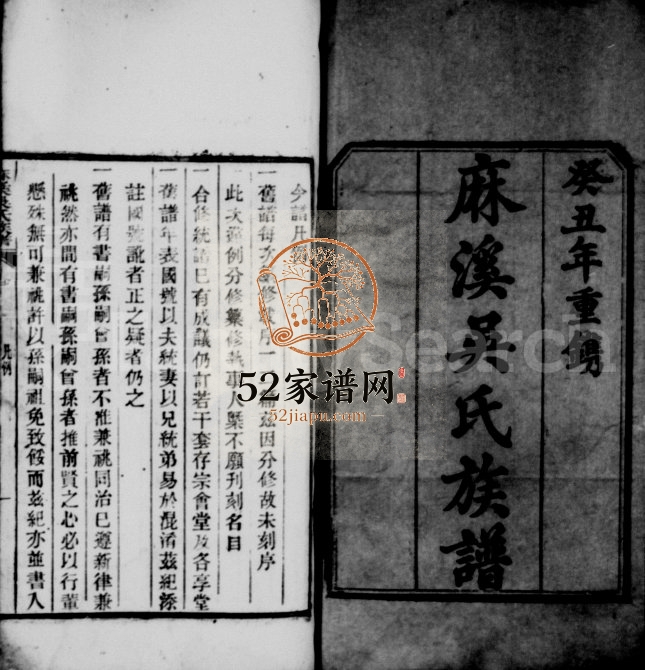 癸丑年重鐫
麻溪吳氏族譜
今譜凡例
一舊譜每次修序一兹因分修故未刻序
此次遵例分修纂修執事人槩不願刊刻名目
一合修統譜已有成議仍訂若干套存宗會堂及各享堂
一舊譜年表國號以夫統妻以兄統弟易於混淆兹紀添
註國號訛者正之疑者仍之
一舊譜有書嗣孫嗣曾孫者不准兼祧同治已遵新律兼
祧然亦間有書嗣孫嗣曾孫者推前賢之心必以行輩
懸殊無可兼祧許以孫嗣祖免致餒而兹紀亦並書入
凡例
52家谱网
52jiapu.com
Search